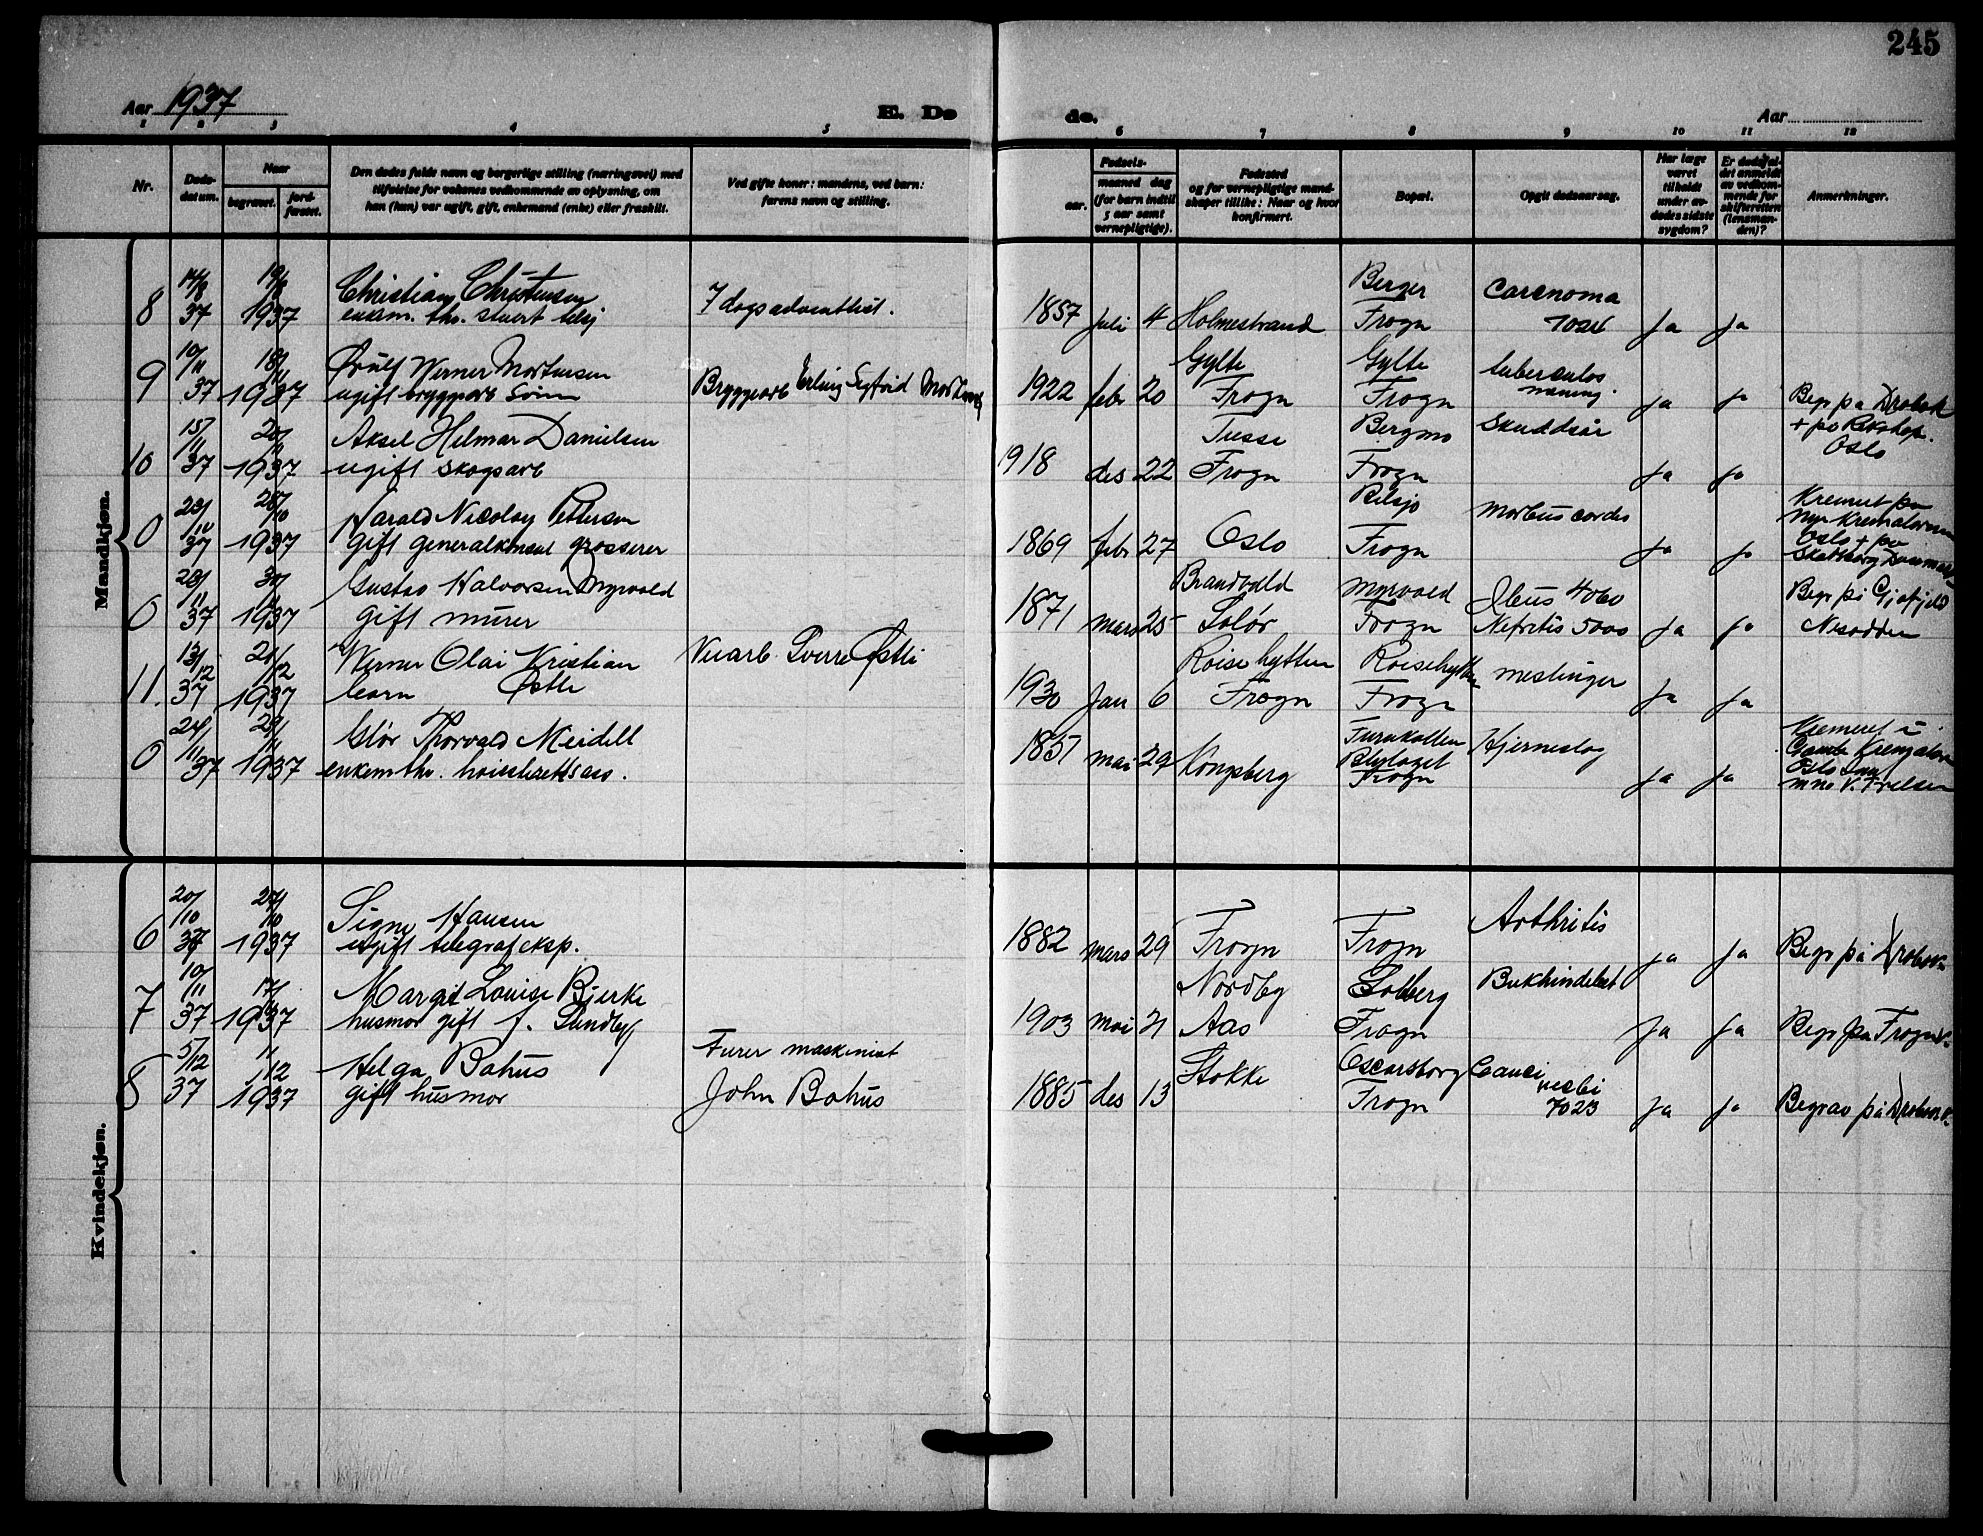 245
Aar 1937
E. Døde.
Aar
1 2 3 4 5 6 7 8 9 10 11 12
Nr.
Døds-datum.
Naar
begravet.
jord-fæstet.
Den dødes fulde navn og borgerlige stilling (næringsvei) med
tilføielse for voksnes vedkommende av oplysning, om
han (hun) var ugift, gift, enkemand (enke) eller fraskilt.
Ved gifte koner: mandens, ved barn:
farens navn og stilling.
Fødsels-
aar.
maaned dag
(for barn indtil
5 aar samt
vernepligtige).
Fødested
og for vernepligtige mand-
skaper tillike: Naar og hvor
konfirmert.
Bopæl.
Opgit dødsaarsag.
Har læge
været
tilkaldt
under av-
dødes sidste
sygdom?
Er dødsfal-
det anmeldt
av vedkom-
mende for
skifteretten
(lensman-
den)?
Anmerkninger.
Mandkjøn.
8 14/8 37 19/8 1937 Christian Christensen
enkm. fhv. stuert
7 dags adventist.
1857 juli 4 Holmestrand Berger Frogn Carcnoma ja ja
9 10/11 37 18/11 1937 Ørulf Werner Mortensen
ugift bryggearb sønn
Bryggearb Erling Sigfrid Mortensen
1922 febr 20 Gylte Frogn Gylte Frogn tuberculos mening. ja ja Begr på Drøbak
+ på Rikshop.
Oslo
10 15/11 37 20/11 1937 Aksel Hilmar Danielsen
ugift skogsarb
1918 des 22 Tusse Frogn Bergmo Frogn Skuddsår ja ja
0 23/10 37 28/10 1937 Harald Nicolay Pettersen
gift generalkonsul grosserer
1869 febr 27 Oslo Frogn morbus cordis ja ja Kremert på
nye krematorium
Oslo + på
Danmark
0 23/11 37 30/11 1937 Gustav Halvorsen Myrvold
gift murer
1871 mars 25 Brandvold Solør Myrvold Frogn Ileus 4060
Nefritis 5000 ja ja Begr på Gjøfjell
Nesodden
11. 13/12 37 21/12 1937 Werner Olai Kristian
barn Østli
Veiarb. Sverre Østli
1930 Jan 6 Roisehytten Frogn Roisehytten Frogn meslinger ja ja
0 24/11 37 29/11 1937 Thorvald Meidell
enkem fhv.
1857 mai 29 Kongsberg Furukollen Frogn Hjerneslag ja ja Kremeret i
Gamle Krematoriu
Oslo
Kvindekjøn.
6 20/10 37 27/10 1937 Signe Hansen
ugift telegrafeksp.
1882 mars 29 Frogn Frogn Arthritis ja ja Begr på Drøbak
7 10/11 37 17/11 1937 Margit Louise Bjerke
husmor gift f. Sundby
1903 mai 21 Nordby Aas Solberg Frogn Bukhindebet ja ja Begr på Frogn
8 5/12 37 11/12 1937 Helga Bohus
gift husmor
Furer maskinist
John Bohus
1885 des 13 Stokke Oscarsborg Frogn 7023 ja ja Begrav på Drøbak